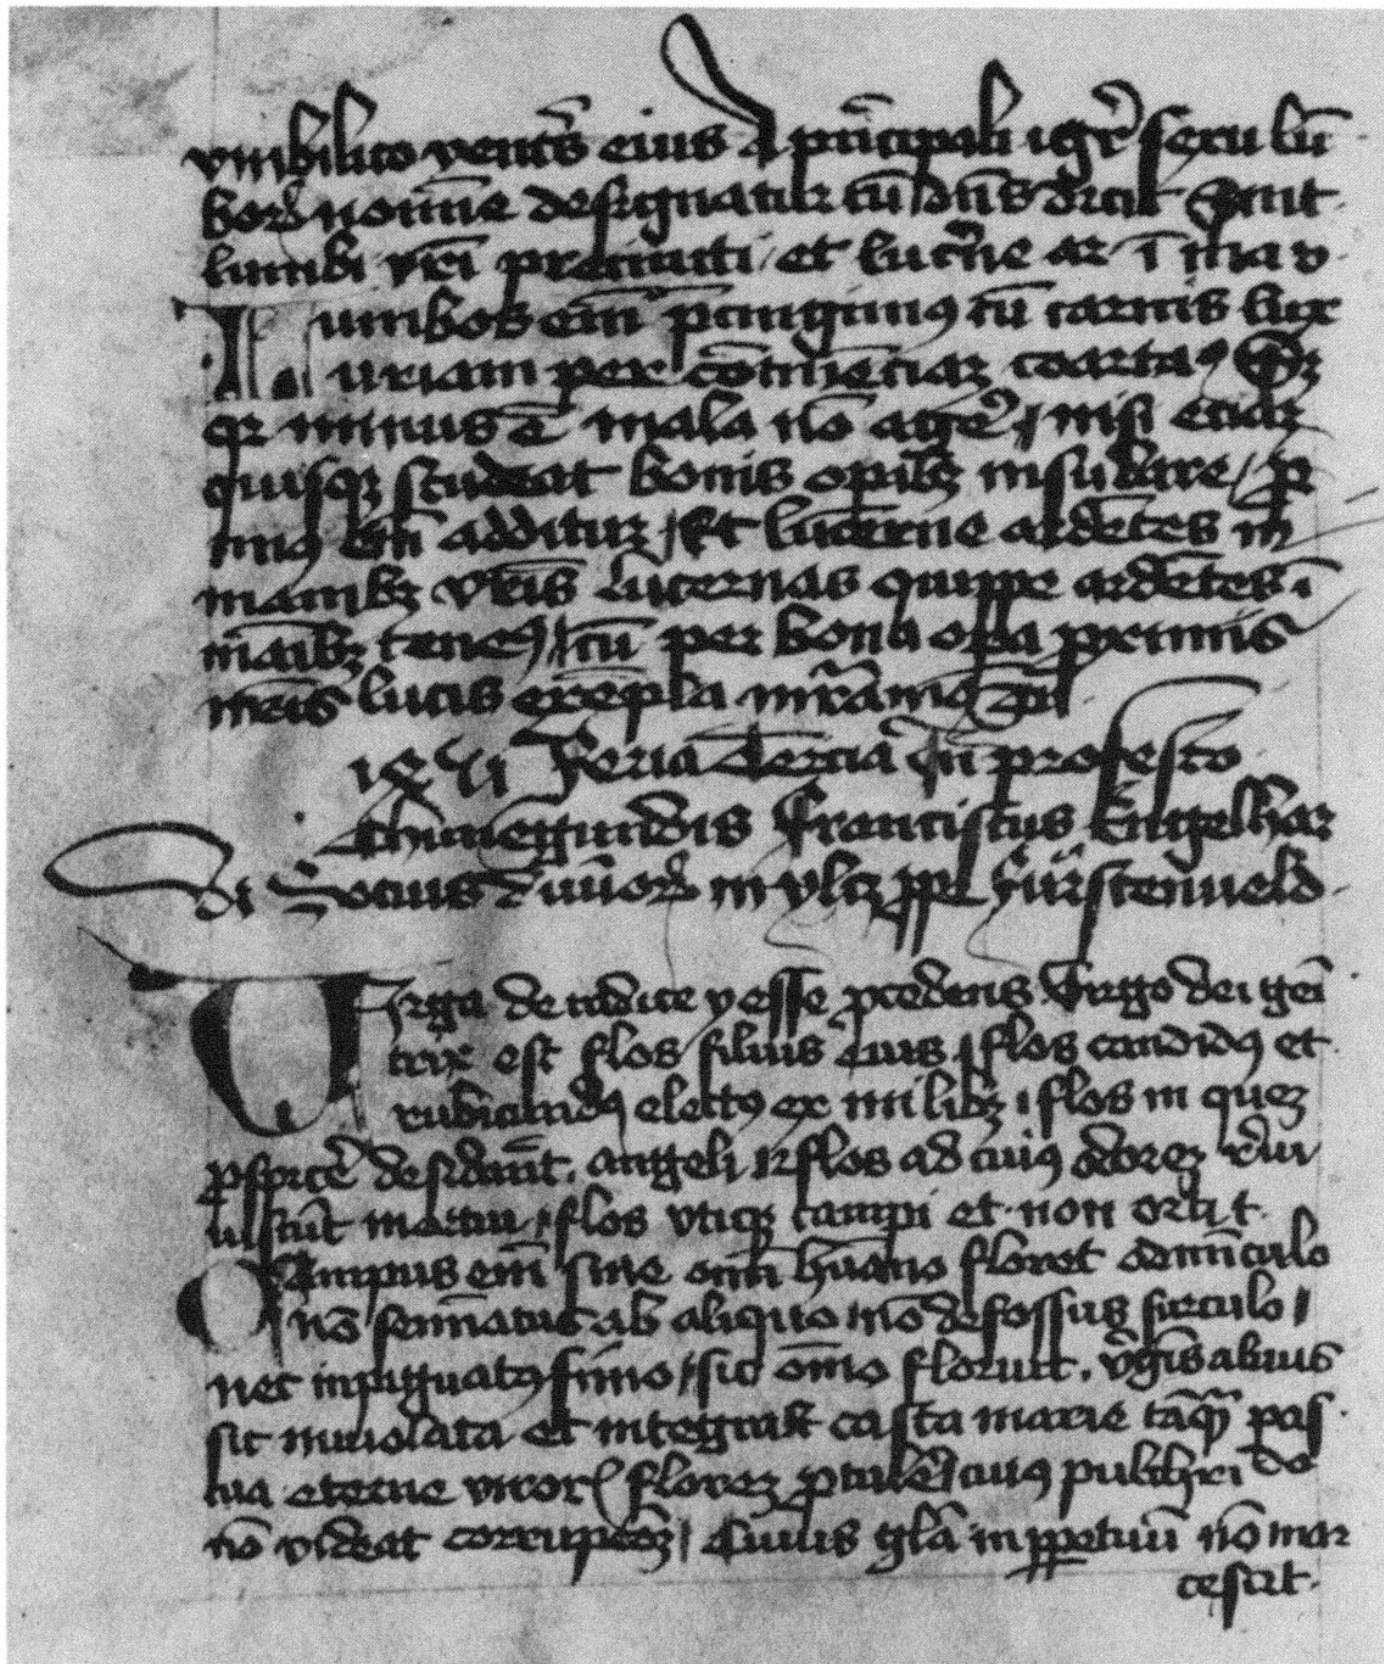 vmbilico ventris eius A principali igr sexu lu
bor nomine designatur cu dns dicit Sint
lumbi vri precincti et lucerne ar i ma v
Lumbos em pcingimus cu carnis lux
uriam per continencia coarta
qr minus e mala no agere nisi eciam
quisqz studeat bonis opibz insudare / p
tinus em additur / Et lucerne ardetes in
manibz vris Lucernas quippe ardetes i
maibz tenemus / cu per bona opa pximis
nris lucis exepla mramus
Feria Tercia in profesto
Chunegundis Franciscus Engelhar
di Socius diuior in yltz ppe Furstenueld
Virga de radice yesse pcedens Virgo dei geni
trix est flos filius eius / flos candidus et
rubicundus electus ex milibz / flos in quez
pspicere desidant angeli / flos ad cuius odorez reui
uiscut mortui / flos vtiqz campi et non orti
Campus em sine omi humano floret adminiculo
no seminatus ab aliquo / no defossus surculo /
nec inpignatus fimo / sic omo floruit virginis aluus
sic inuiolata et integra casta marie taqua pas
cua eterne viror florez ptulere / cuius pulchri do
no videat corrupcoez / Cuius gla in ppetuu no mar
cescit